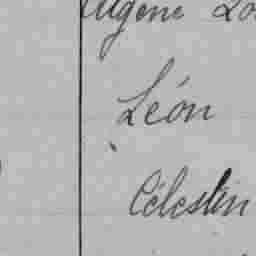 Eugène
Léon
Célestin